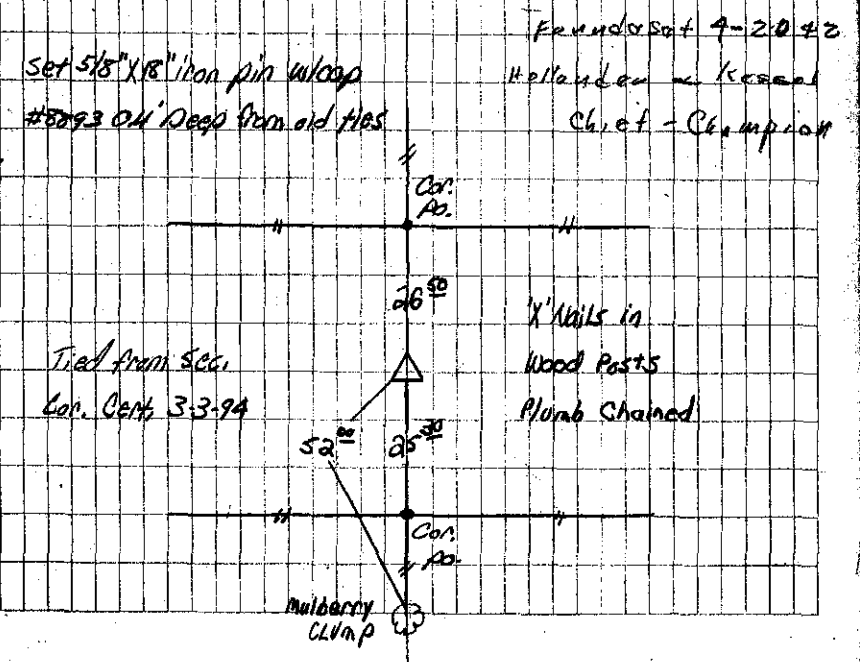 Found & Set 9-2042
Hollander - Kessel
Chief - Champion
Set 5/8"X18" iron pin w/cap
#8893 0.4' Deep from old ties
Cor.
Po.
26 50
'X' Nails in
Wood Posts
Plumb Chained
Tied from Sec.
Cor. Cert, 3-3-94
52 00
25
Cor.
Po.
Mulberry
CLUMP